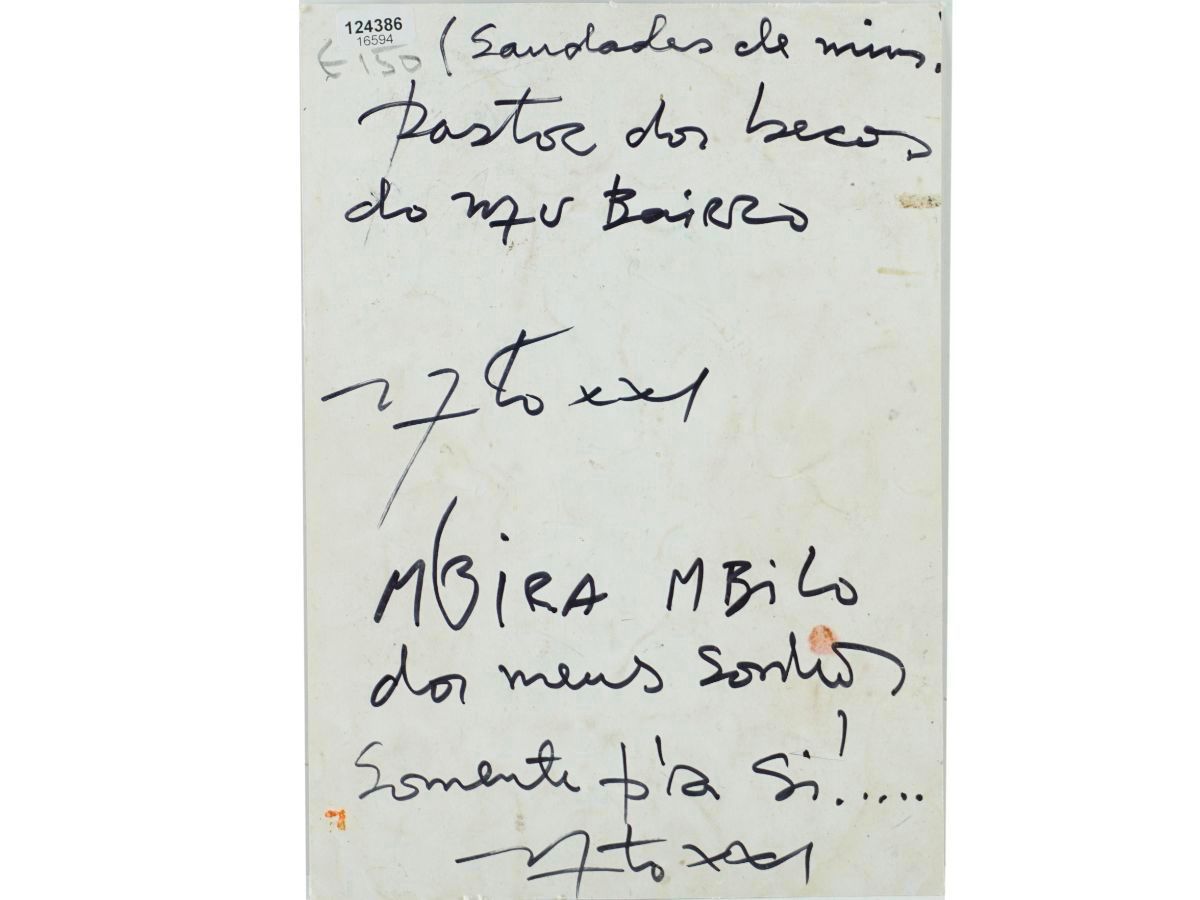 124386
16594
£150 (Saudades de mim.
Pastor dos becos
do meu Bairro
Neto xxl
MBIRA MBILO
dos meus sonhos
Somente p'ra Si!.....
Neto xxl